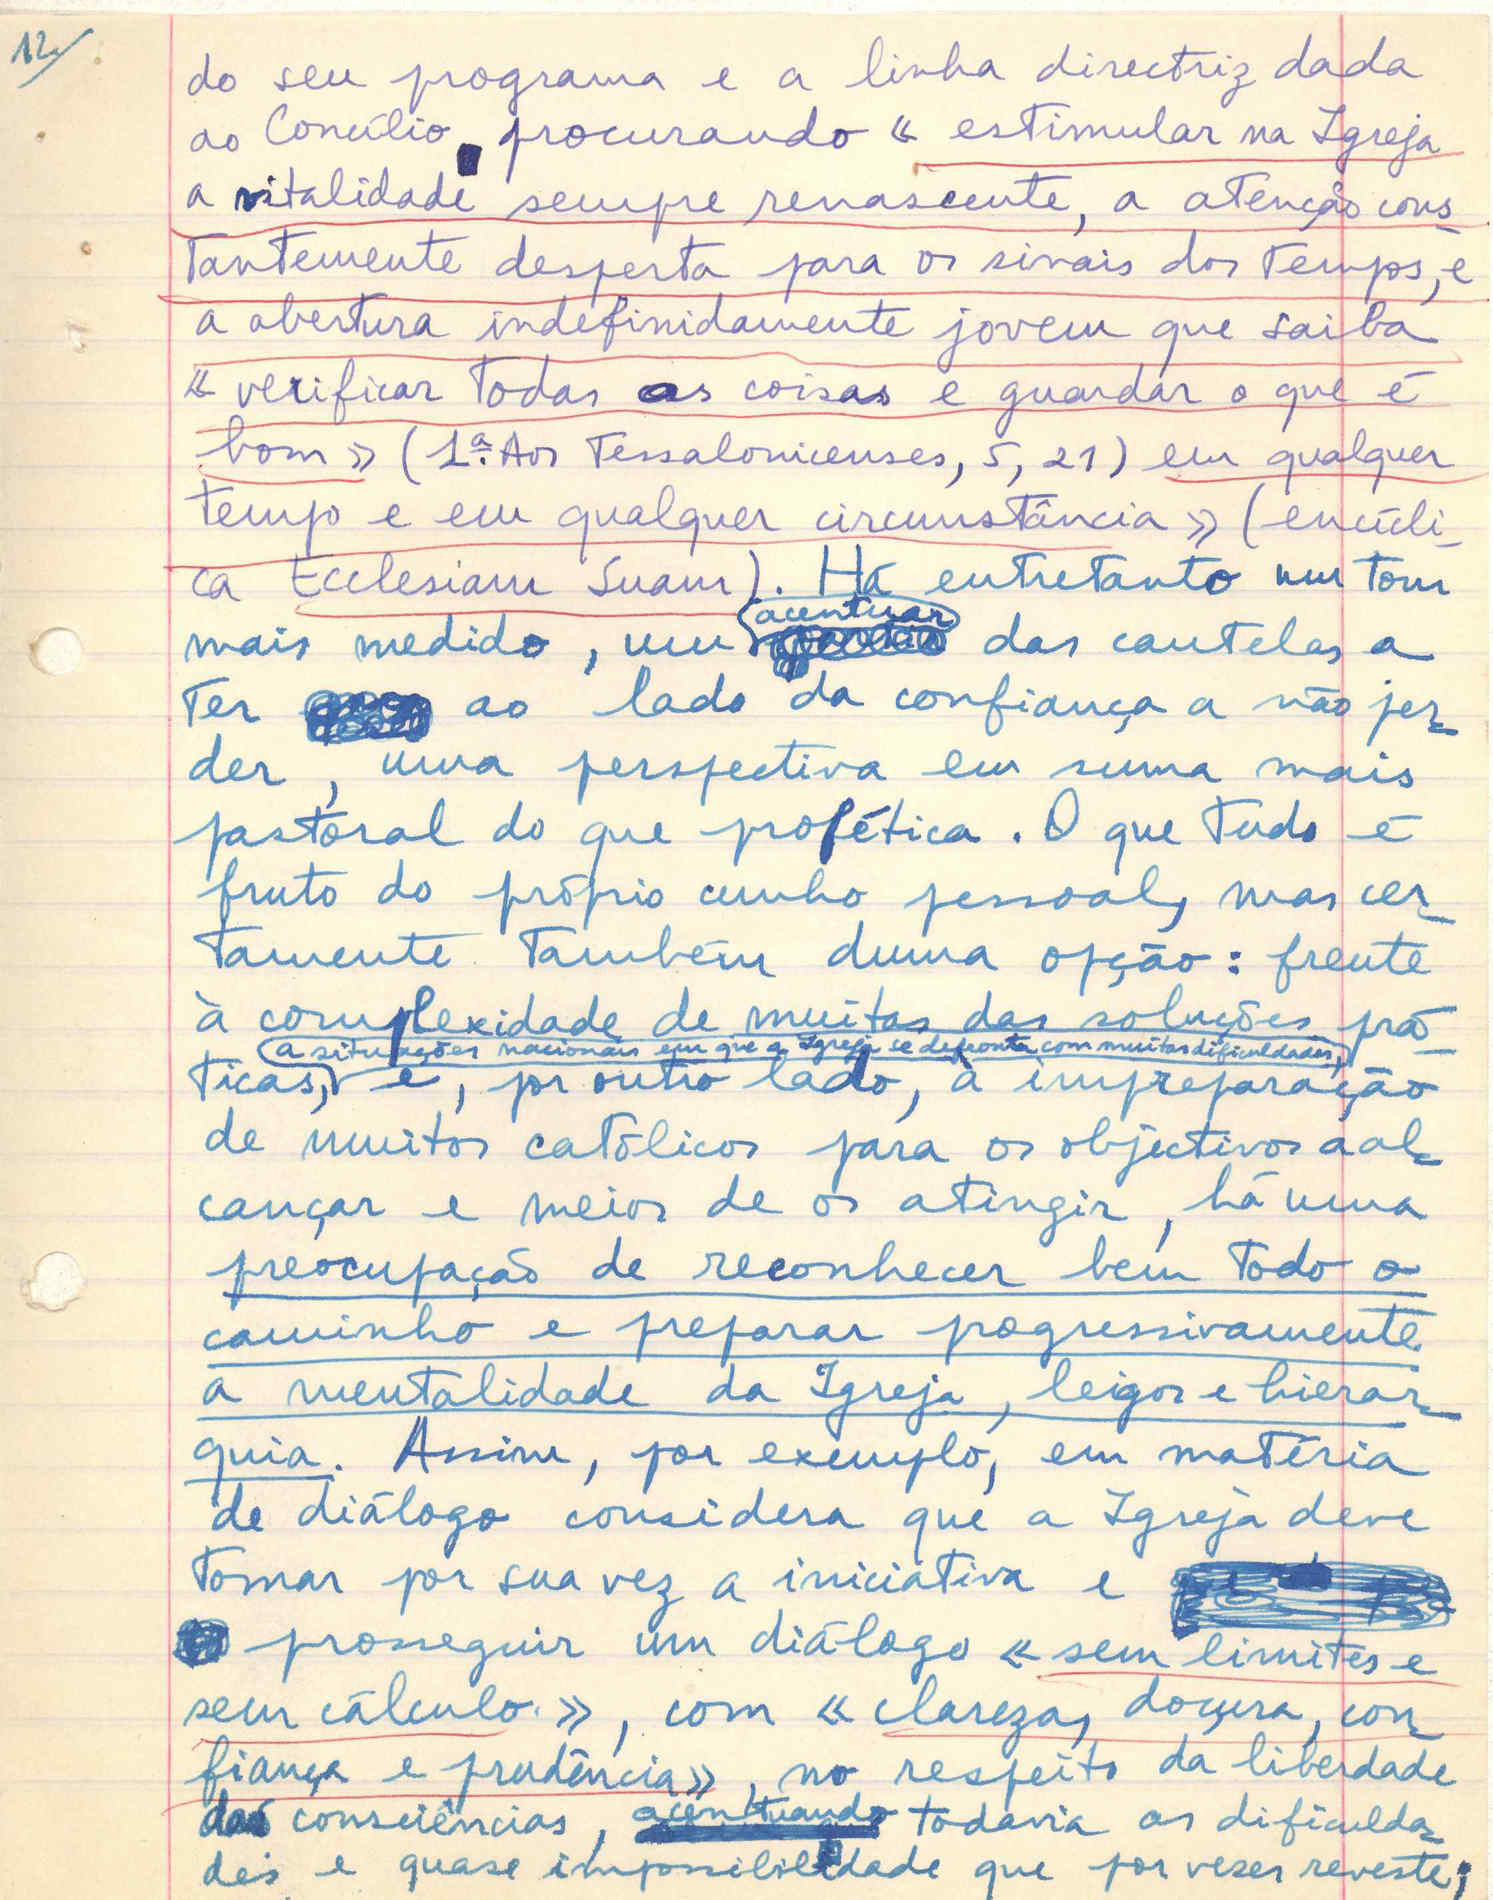 12/
do seu programa e a linha directriz dada
ao Concílio, procurando « estimular na Igreja
a vitalidade sempre renascente, a atenção cons-
tantemente desperta para os sinais dos tempos, e
a abertura indefinidamente jovem que saiba
« verificar todas as coisas e guardar o que é
bom » (1ª. Aos Tessalonicenses, 5, 21) em qualquer
tempo e em qualquer circunstância » (encícli-
ca Ecclesiam Suam). Há entretanto um tom
acentuar
mais medido, um das cautelas a
ter ao lado da confiança a não per-
der, uma perspectiva em suma mais
pastoral do que profética. O que tudo é
fruto do próprio cunho pessoal, mas cer-
tamente também duma opção: frente
à complexidade de muitas das soluções prá-
a situações nacionais em que a Igreja se defronta com muitas dificuldades,
ticas, e, por outro lado, à impreparação
de muitos católicos para os objectivos a al-
cançar e meios de os atingir, há uma
preocupação de reconhecer bem todo o
caminho e preparar progressivamente
a mentalidade da Igreja, leigos e hierar-
quia. Assim, por exemplo, em matéria
de diálogo considera que a Igreja deve
tomar por sua vez a iniciativa e
prosseguir um diálogo « sem limites e
sem cálculo », com « clareza, doçura, con-
fiança e prudência », no respeito da liberdade
das consciências, acentuando todavia as dificulda-
des e quase impossibilidade que por vezes reveste;